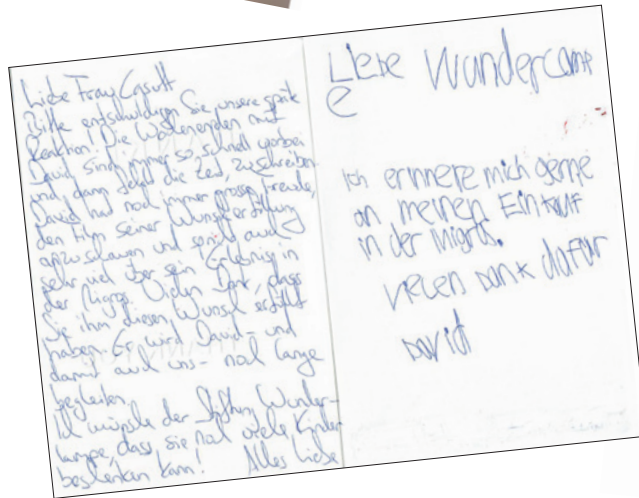 Liebe Frau Casutt
Bitte entschuldigen Sie unsere späte
Reaktion! Die Wochenenden mit
David sind immer so schnell vorbei
und dann fehlt die Zeit, zu schreiben.
David hat noch immer grosse Freude,
den Film seiner Wunscherfüllung
anzuschauen und spricht auch
sehr viel über sein Erlebnis in
der Migros. Vielen Dank, dass
Sie ihm diesen Wunsch erfüllt
haben. Er wird David – und
damit auch uns – noch lange
begleiten.
Ich wünsche der Stiftung Wunder-
lampe, dass sie noch viele Kinder
beschenken kann! Alles Liebe
Liebe Wunderlamp
e
Ich erinnere mich gerne
an meinen Einkauf
in der Migros.
vielen Dank dafür
David